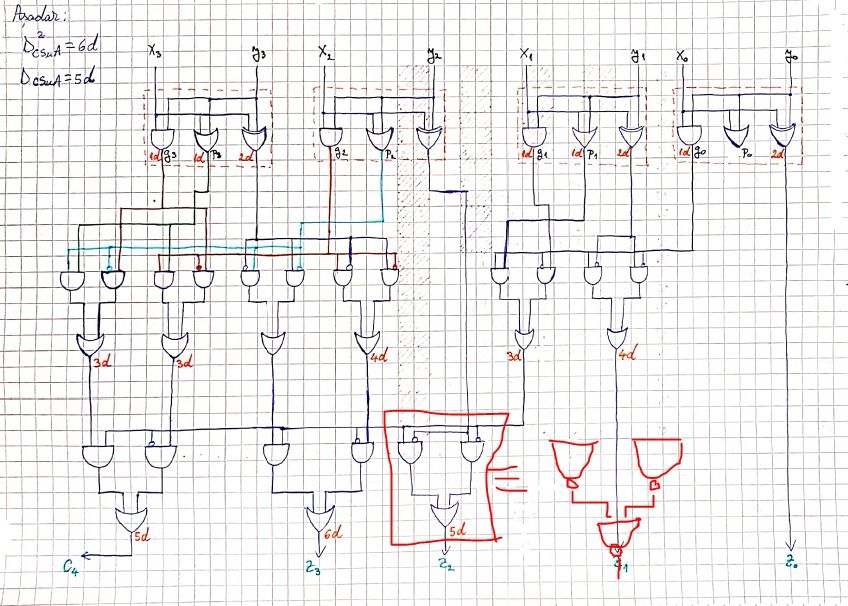 Așadar:
D²csuA = 6d
DcsuA = 5d
x₃ y₃ x₂ y₂ x₁ y₁ x₀ y₀
1d g₃ 1d p₃ 2d g₂ p₂ 1d g₁ 1d p₁ 2d 1d g₀ p₀ 2d
3d 3d 4d 3d 4d
5d 6d 5d
C₄ z₃ z₂ z₁ z₀